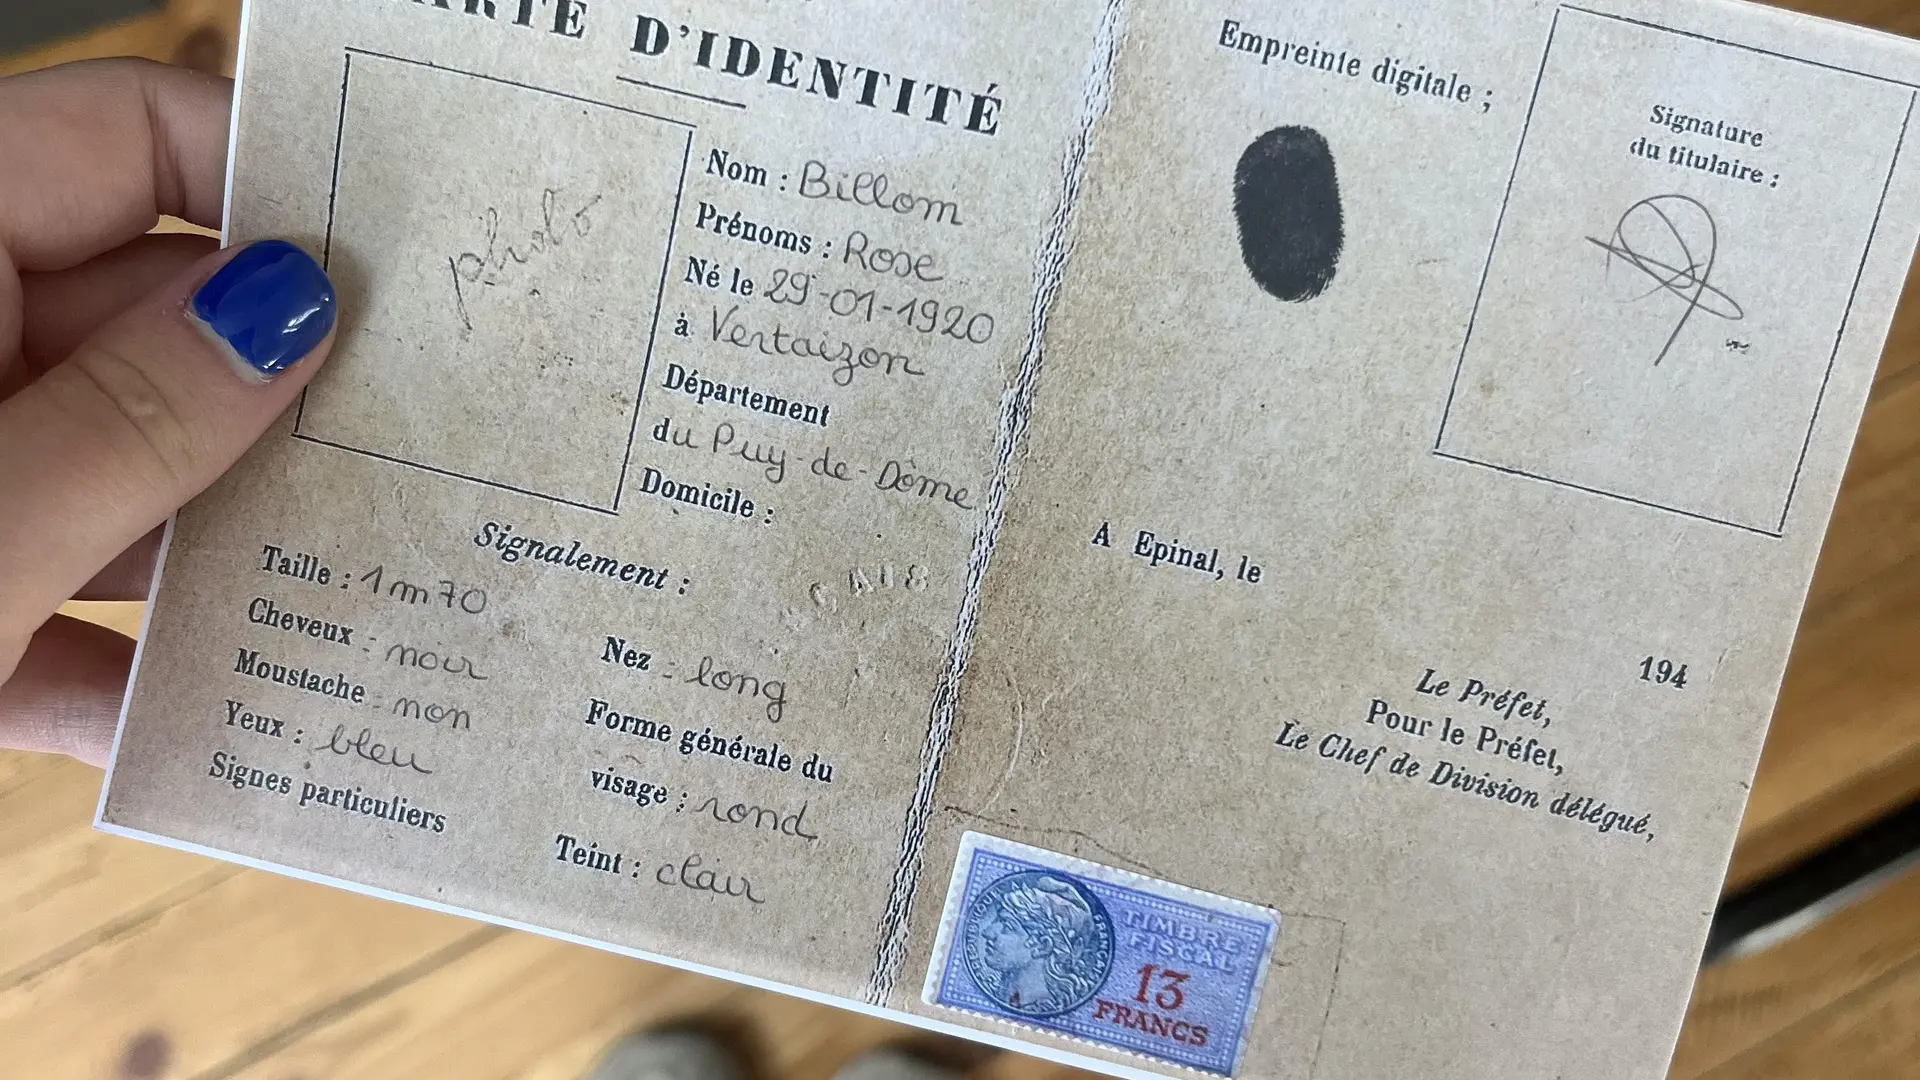 CARTE D'IDENTITÉ
photo
Nom : Billom
Prénoms : Rose
Né le 29-01-1920
à Vertaizon
Département
du Puy-de-Dôme
Domicile :
Signalement :
Taille : 1m70
Cheveux : noir
Moustache : non
Yeux : bleu
Signes particuliers
Nez : long
Forme générale du
visage : rond
Teint : clair
Empreinte digitale ;
Signature
du titulaire :
A Epinal, le
194
Le Préfet,
Pour le Préfet,
Le Chef de Division délégué,
TIMBRE
FISCAL
13
FRANCS